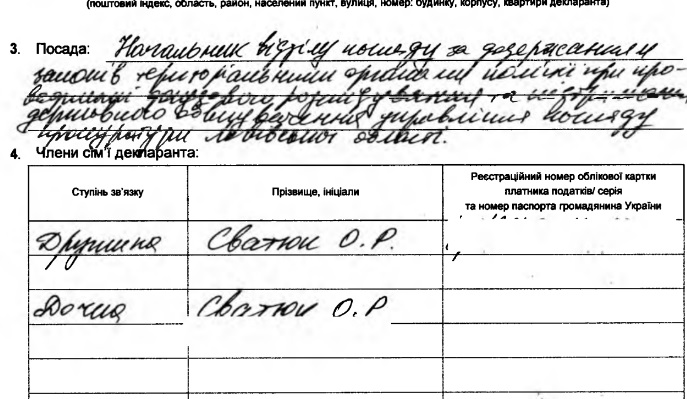 (поштовий індекс, область, район, населений пункт, вулиця, номер: будинку, корпусу, квартири декларанта)
3. Посада: Начальник відділу нагляду за додержанням
законів територіальними органами поліції при про-
веденні досудового розслідування та підтриманням
державного обвинувачення управління нагляду
прокуратури Львівської області.
4. Члени сім'ї декларанта:
Ступінь зв'язку
Прізвище, ініціали
Реєстраційний номер облікової картки
платника податків/ серія
та номер паспорта громадянина України
Дружина Сватюк О.Р.
Дочка Сватюк О.Р